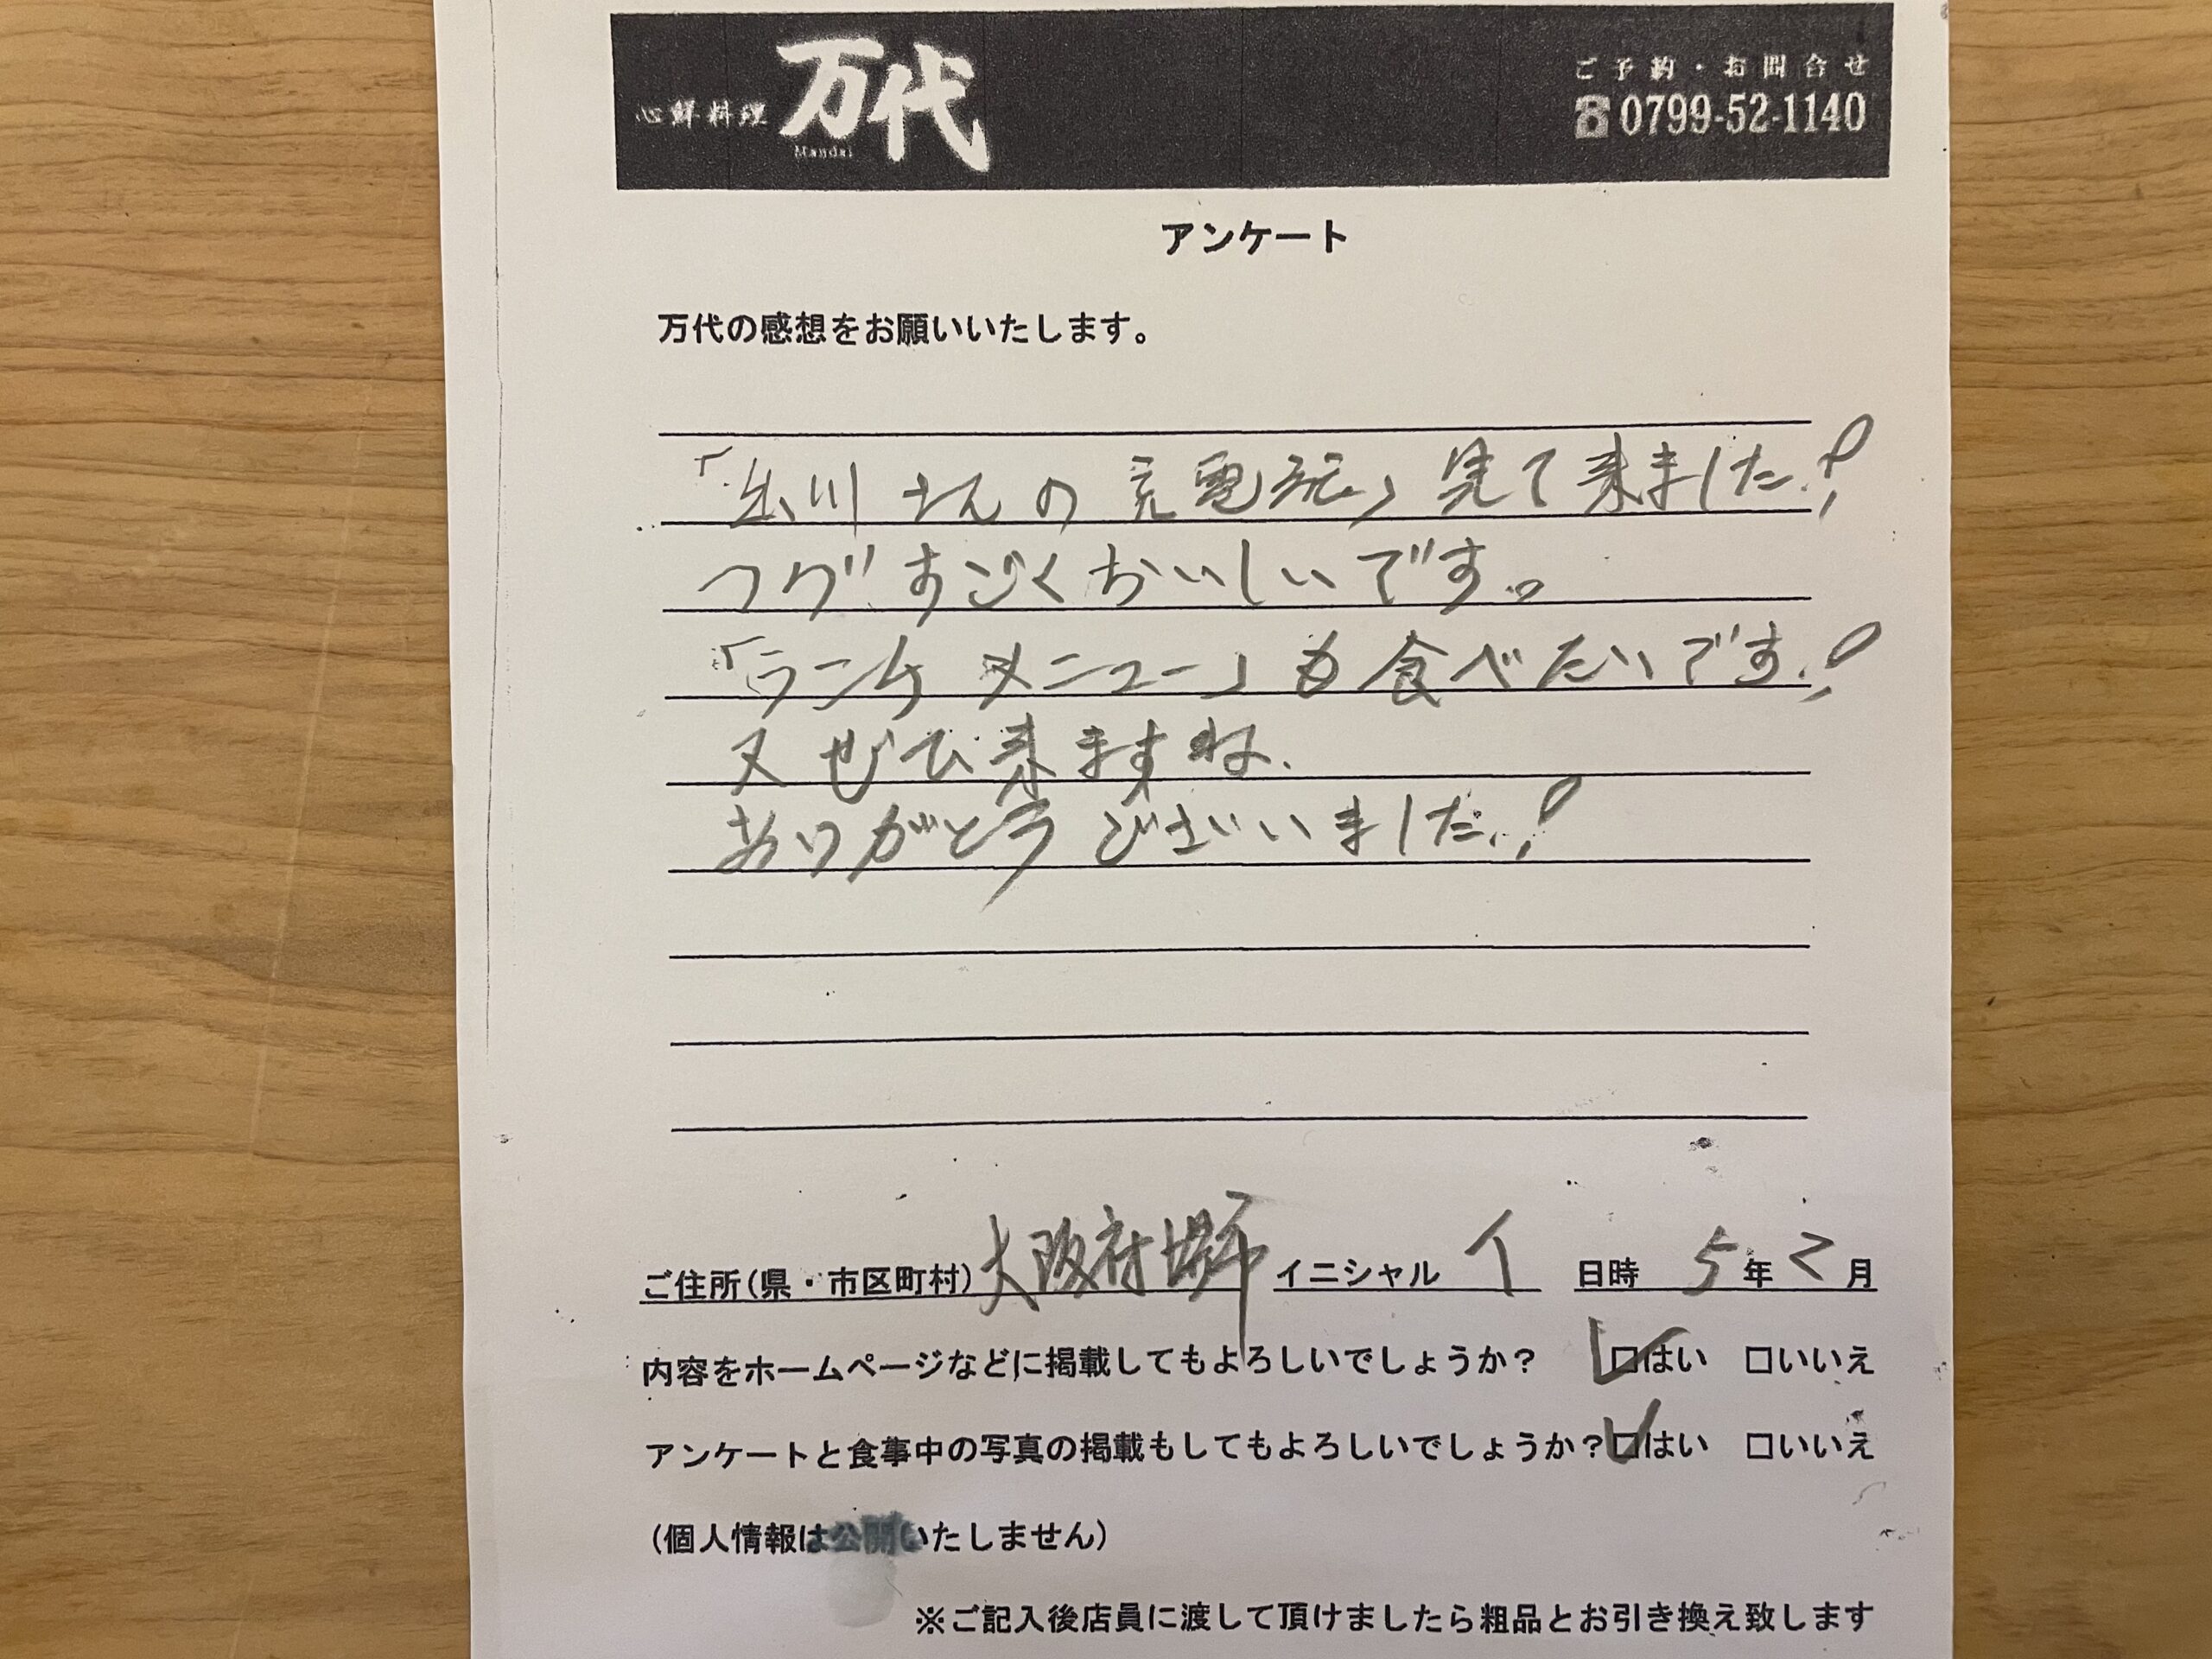 心鮮料理 万代
Mandai
ご予約・お問合せ
☎0799-52-1140
アンケート
万代の感想をお願いいたします。
「出川さんの充電旅」見て来ました!
フグすごくおいしいです。
「ランチメニュー」も食べたいです!
又ぜひ来ますね.
ありがとうございました!
ご住所(県・市区町村)大阪府堺市 イニシャル イ 日時 5年2月
内容をホームページなどに掲載してもよろしいでしょうか? ☑はい □いいえ
アンケートと食事中の写真の掲載もしてもよろしいでしょうか?☑はい □いいえ
(個人情報は公開いたしません)
※ご記入後店員に渡して頂けましたら粗品とお引き換え致します